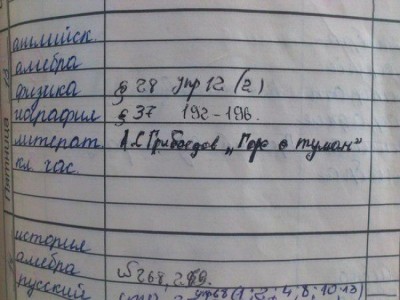 английск.
алгебра
физика § 28 упр 12 (2)
география § 37 192-196.
литерат. А.С Грибоедов „Горе о туман"
кл. час.
Пятница
история
алгебра №268, 269.
русский упр68 (1; 2; 4; 8; 10. 13)